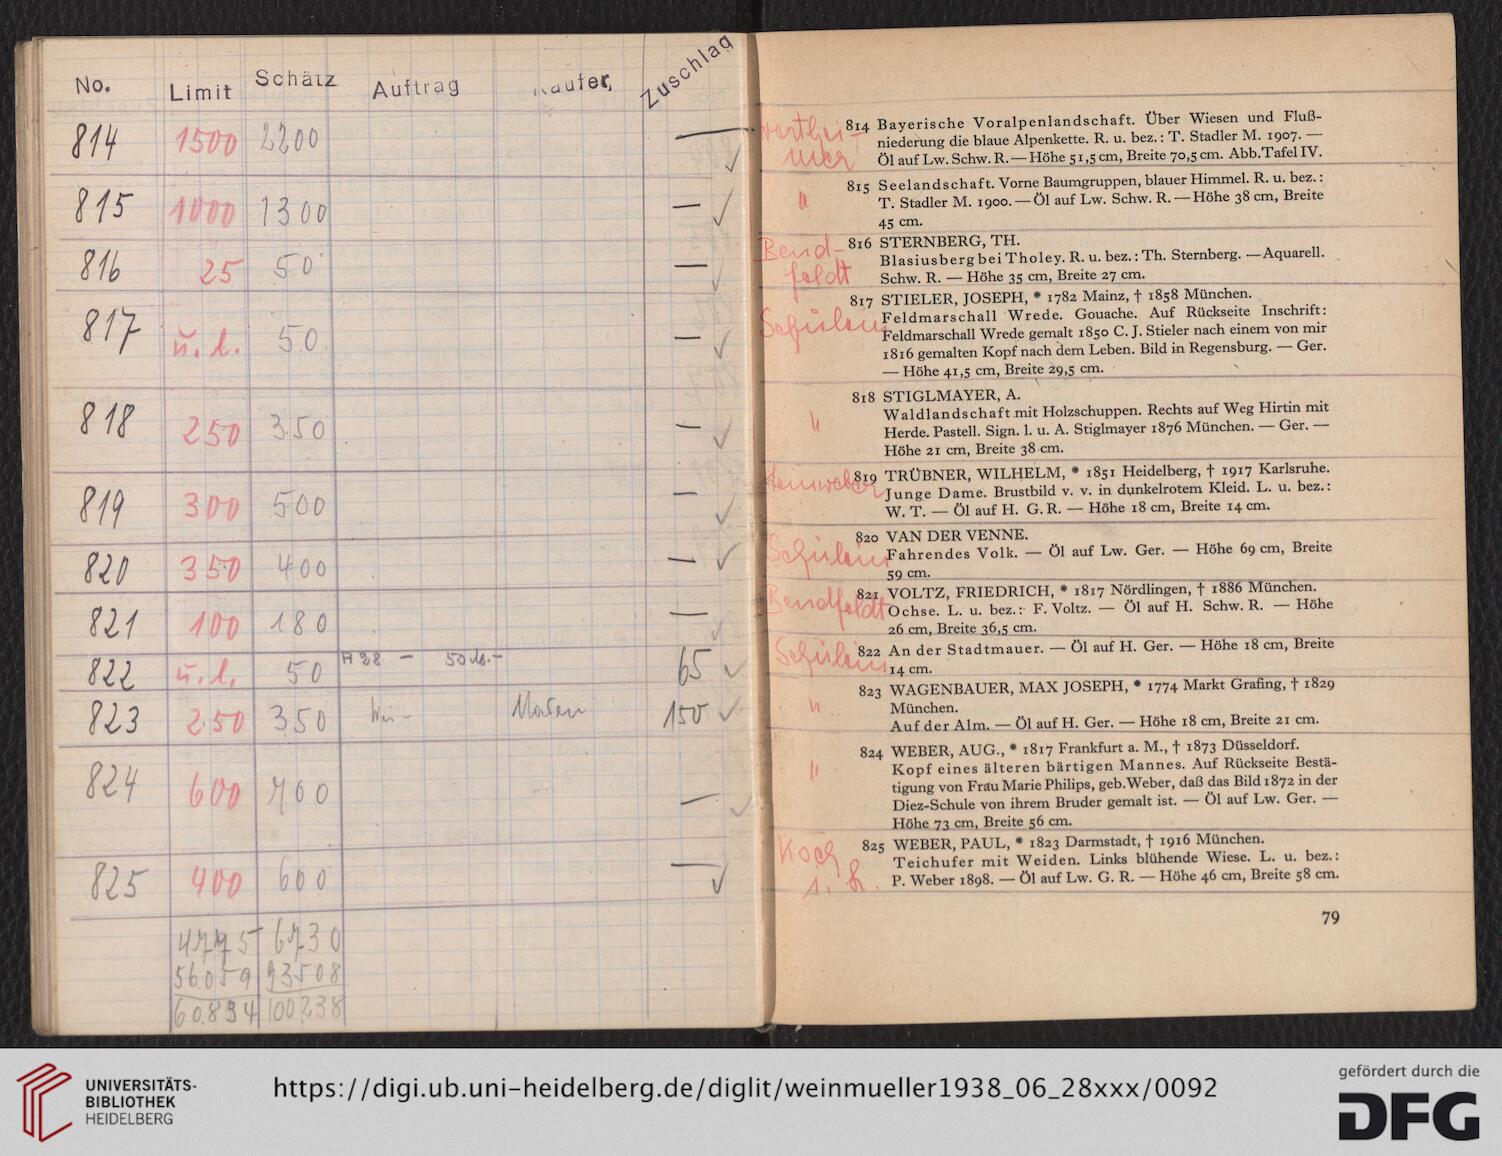 No. Limit Schätz Auftrag Käufer, Zuschlag
814 1500 2200 —
815 1000 1300 —
816 25 50 —
817 u. l. 50 —
818 250 350 —
819 300 500 —
820 350 400 —
821 100 180 —
822 u. l. 50 65
823 250 350 150
824 600 700 —
825 400 600 —
4775 6730
56.059 93508
60.834 100.238
Werthei-
mer
814 Bayerische Voralpenlandschaft. Über Wiesen und Fluß-
niederung die blaue Alpenkette. R. u. bez.: T. Stadler M. 1907. —
Öl auf Lw. Schw. R. — Höhe 51,5 cm, Breite 70,5 cm. Abb. Tafel IV.
"
815 Seelandschaft. Vorne Baumgruppen, blauer Himmel. R. u. bez.:
T. Stadler M. 1900. — Öl auf Lw. Schw. R. — Höhe 38 cm, Breite
45 cm.
Bend-
feldt
816 STERNBERG, TH.
Blasiusberg bei Tholey. R. u. bez.: Th. Sternberg. — Aquarell.
Schw. R. — Höhe 35 cm, Breite 27 cm.
Schülein
817 STIELER, JOSEPH, * 1782 Mainz, † 1858 München.
Feldmarschall Wrede. Gouache. Auf Rückseite Inschrift:
Feldmarschall Wrede gemalt 1850 C. J. Stieler nach einem von mir
1816 gemalten Kopf nach dem Leben. Bild in Regensburg. — Ger.
— Höhe 41,5 cm, Breite 29,5 cm.
"
818 STIGLMAYER, A.
Waldlandschaft mit Holzschuppen. Rechts auf Weg Hirtin mit
Herde. Pastell. Sign. l. u. A. Stiglmayer 1876 München. — Ger. —
Höhe 21 cm, Breite 38 cm.
819 TRÜBNER, WILHELM, * 1851 Heidelberg, † 1917 Karlsruhe.
Junge Dame. Brustbild v. v. in dunkelrotem Kleid. L. u. bez.:
W. T. — Öl auf H. G. R. — Höhe 18 cm, Breite 14 cm.
Schülein
820 VAN DER VENNE.
Fahrendes Volk. — Öl auf Lw. Ger. — Höhe 69 cm, Breite
59 cm.
Bendfeldt
821 VOLTZ, FRIEDRICH, * 1817 Nördlingen, † 1886 München.
Ochse. L. u. bez.: F. Voltz. — Öl auf H. Schw. R. — Höhe
26 cm, Breite 36,5 cm.
Schülein
822 An der Stadtmauer. — Öl auf H. Ger. — Höhe 18 cm, Breite
14 cm.
"
823 WAGENBAUER, MAX JOSEPH, * 1774 Markt Grafing, † 1829
München.
Auf der Alm. — Öl auf H. Ger. — Höhe 18 cm, Breite 21 cm.
"
824 WEBER, AUG., * 1817 Frankfurt a. M., † 1873 Düsseldorf.
Kopf eines älteren bärtigen Mannes. Auf Rückseite Bestä-
tigung von Frau Marie Philips, geb. Weber, daß das Bild 1872 in der
Diez-Schule von ihrem Bruder gemalt ist. — Öl auf Lw. Ger. —
Höhe 73 cm, Breite 56 cm.
Koch
825 WEBER, PAUL, * 1823 Darmstadt, † 1916 München.
Teichufer mit Weiden. Links blühende Wiese. L. u. bez.:
P. Weber 1898. — Öl auf Lw. G. R. — Höhe 46 cm, Breite 58 cm.
79
UNIVERSITÄTS-
BIBLIOTHEK
HEIDELBERG
https://digi.ub.uni-heidelberg.de/diglit/weinmueller1938_06_28xxx/0092
gefördert durch die
DFG